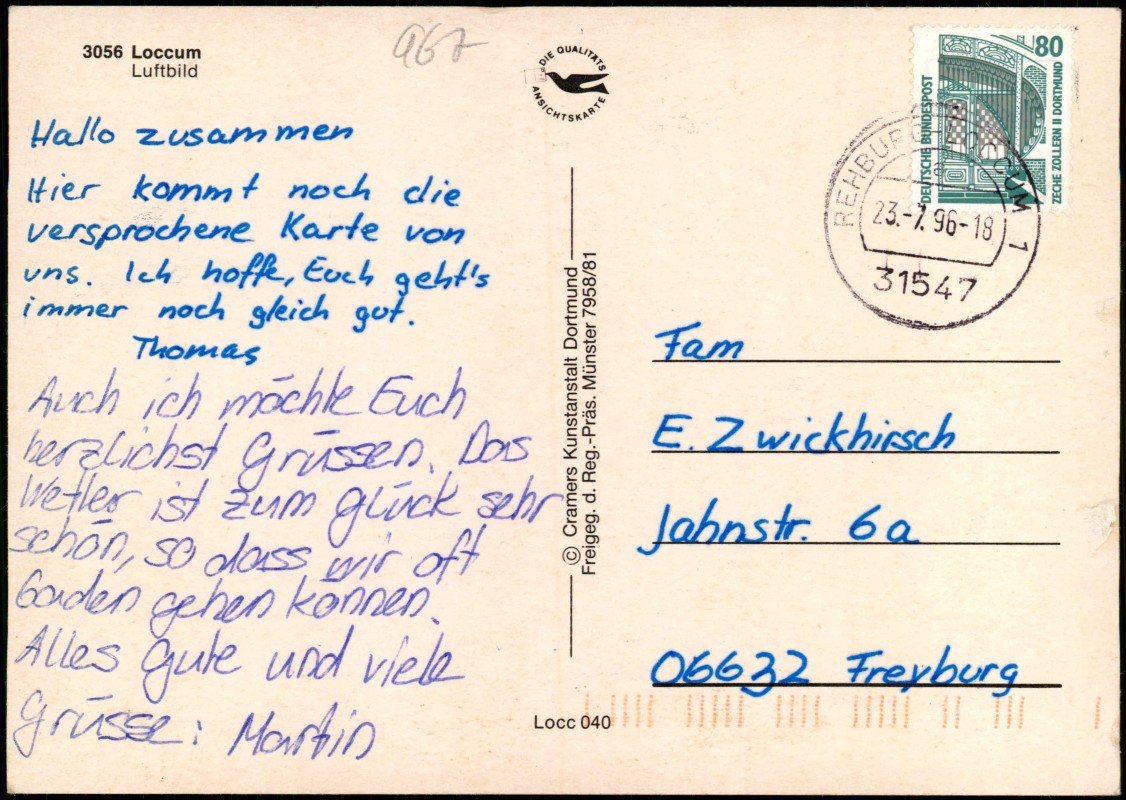 3056 Loccum
Luftbild
967
DIE QUALITÄTS
ANSICHTSKARTE
80
DEUTSCHE BUNDESPOST
ZECHE ZOLLERN II DORTMUND
REHBURG-LOCCUM 1
23.-7.96-18
31547
Hallo zusammen
Hier kommt noch die
versprochene Karte von
uns. Ich hoffe, Euch geht's
immer noch gleich gut.
Thomas
Auch ich möchte Euch
herzlichst Grüssen. Das
Wetter ist zum glück sehr
schön, so dass wir oft
baden gehen können.
Alles Gute und viele
Grüsse: Martin
© Cramers Kunstanstalt Dortmund
Freigeg. d. Reg.-Präs. Münster 7958/81
Fam
E. Zwickhirsch
Jahnstr. 6a
06632 Freyburg
Locc 040